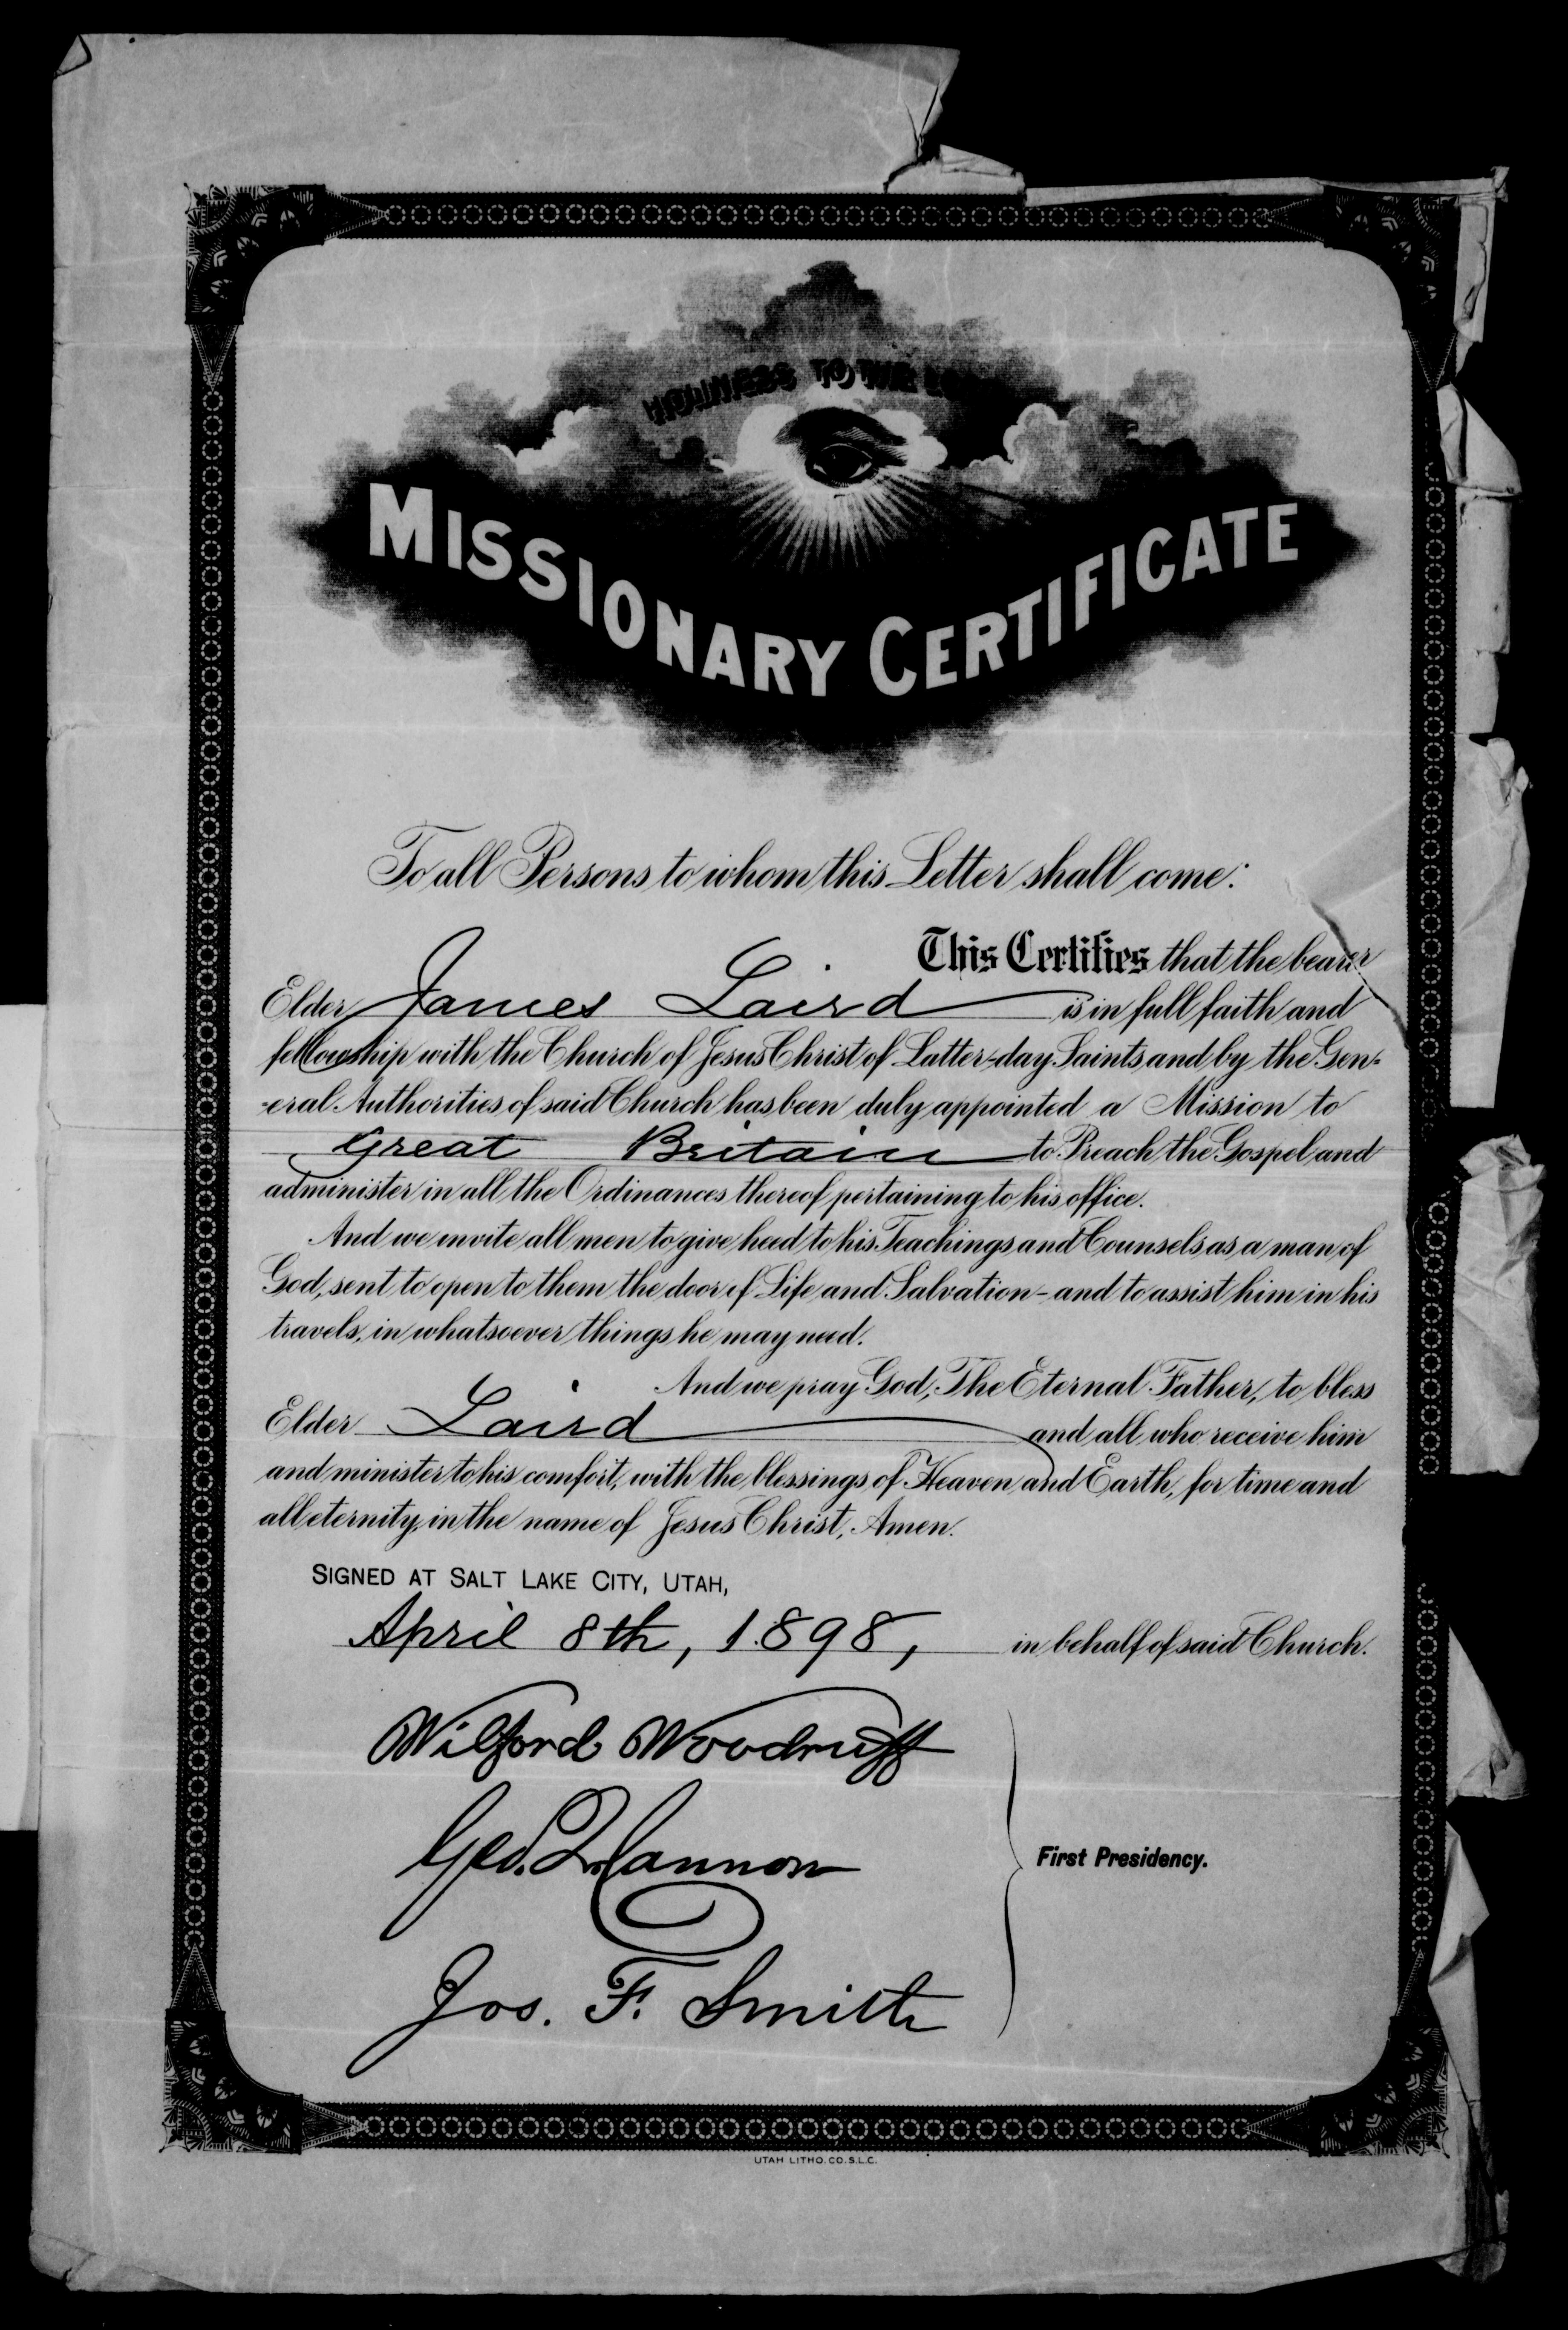 HOLINESS TO THE
MISSIONARY CERTIFICATE
To all Persons to whom this Letter shall come:
This Certifies that the bearer
Elder James Laird is in full faith and
fellowship with the Church of Jesus Christ of Latter-day Saints and by the Gen-
-eral Authorities of said Church has been duly appointed a Mission to
Great Britain to Preach the Gospel and
administer in all the Ordinances thereof pertaining to his office.
And we invite all men to give heed to his Teachings and Counsels as a man of
God, sent to open to them the door of Life and Salvation - and to assist him in his
travels, in whatsoever things he may need.
And we pray God, The Eternal Father, to bless
Elder Laird and all who receive him
and minister to his comfort, with the blessings of Heaven and Earth, for time and
all eternity, in the name of Jesus Christ, Amen.
SIGNED AT SALT LAKE CITY, UTAH,
April 8th, 1898, in behalf of said Church.
Wilford Woodruff
Geo. Q. Cannon
First Presidency.
Jos. F. Smith
UTAH LITHO. CO. S.L.C.